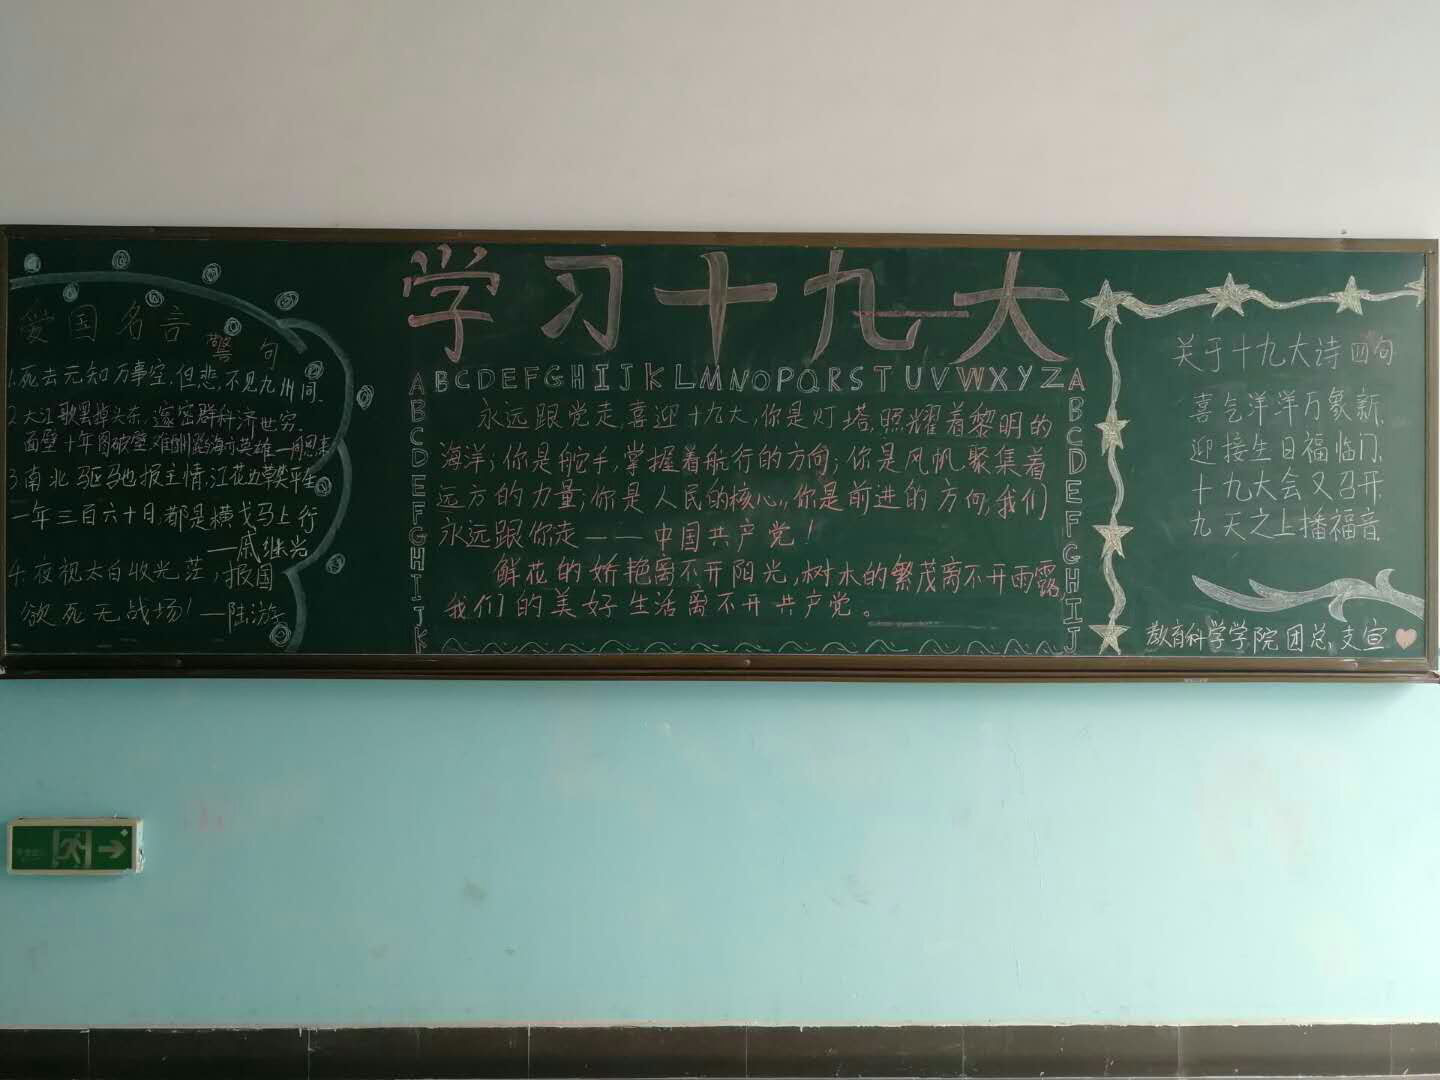 学习十九大
爱国名言
警句
1.死去元知万事空,但悲,不见九州同.
2.大江歌罢掉头东,邃密群科济世穷.
面壁十年图破壁,难酬蹈海亦英雄—周恩来
3.南北驱驰报主情,江花边草笑平生
一年三百六十日,都是横戈马上行
—戚继光
4.夜视太白收光芒,报国
欲死无战场!—陆游
ABCDEFGHIJKLMNOPQRSTUVWXYZA
BCDEFGHIJK
永远跟党走,喜迎十九大,你是灯塔,照耀着黎明的
海洋;你是舵手,掌握着航行的方向;你是风帆,聚集着
远方的力量;你是人民的核心,你是前进的方向,我们
永远跟你走——中国共产党!
鲜花的娇艳离不开阳光,树木的繁茂离不开雨露,
我们的美好生活离不开共产党。
BCDEFGHIJ
关于十九大诗四句
喜气洋洋万象新,
迎接生日福临门,
十九大会又召开,
九天之上播福音.
教育科学学院团总支宣